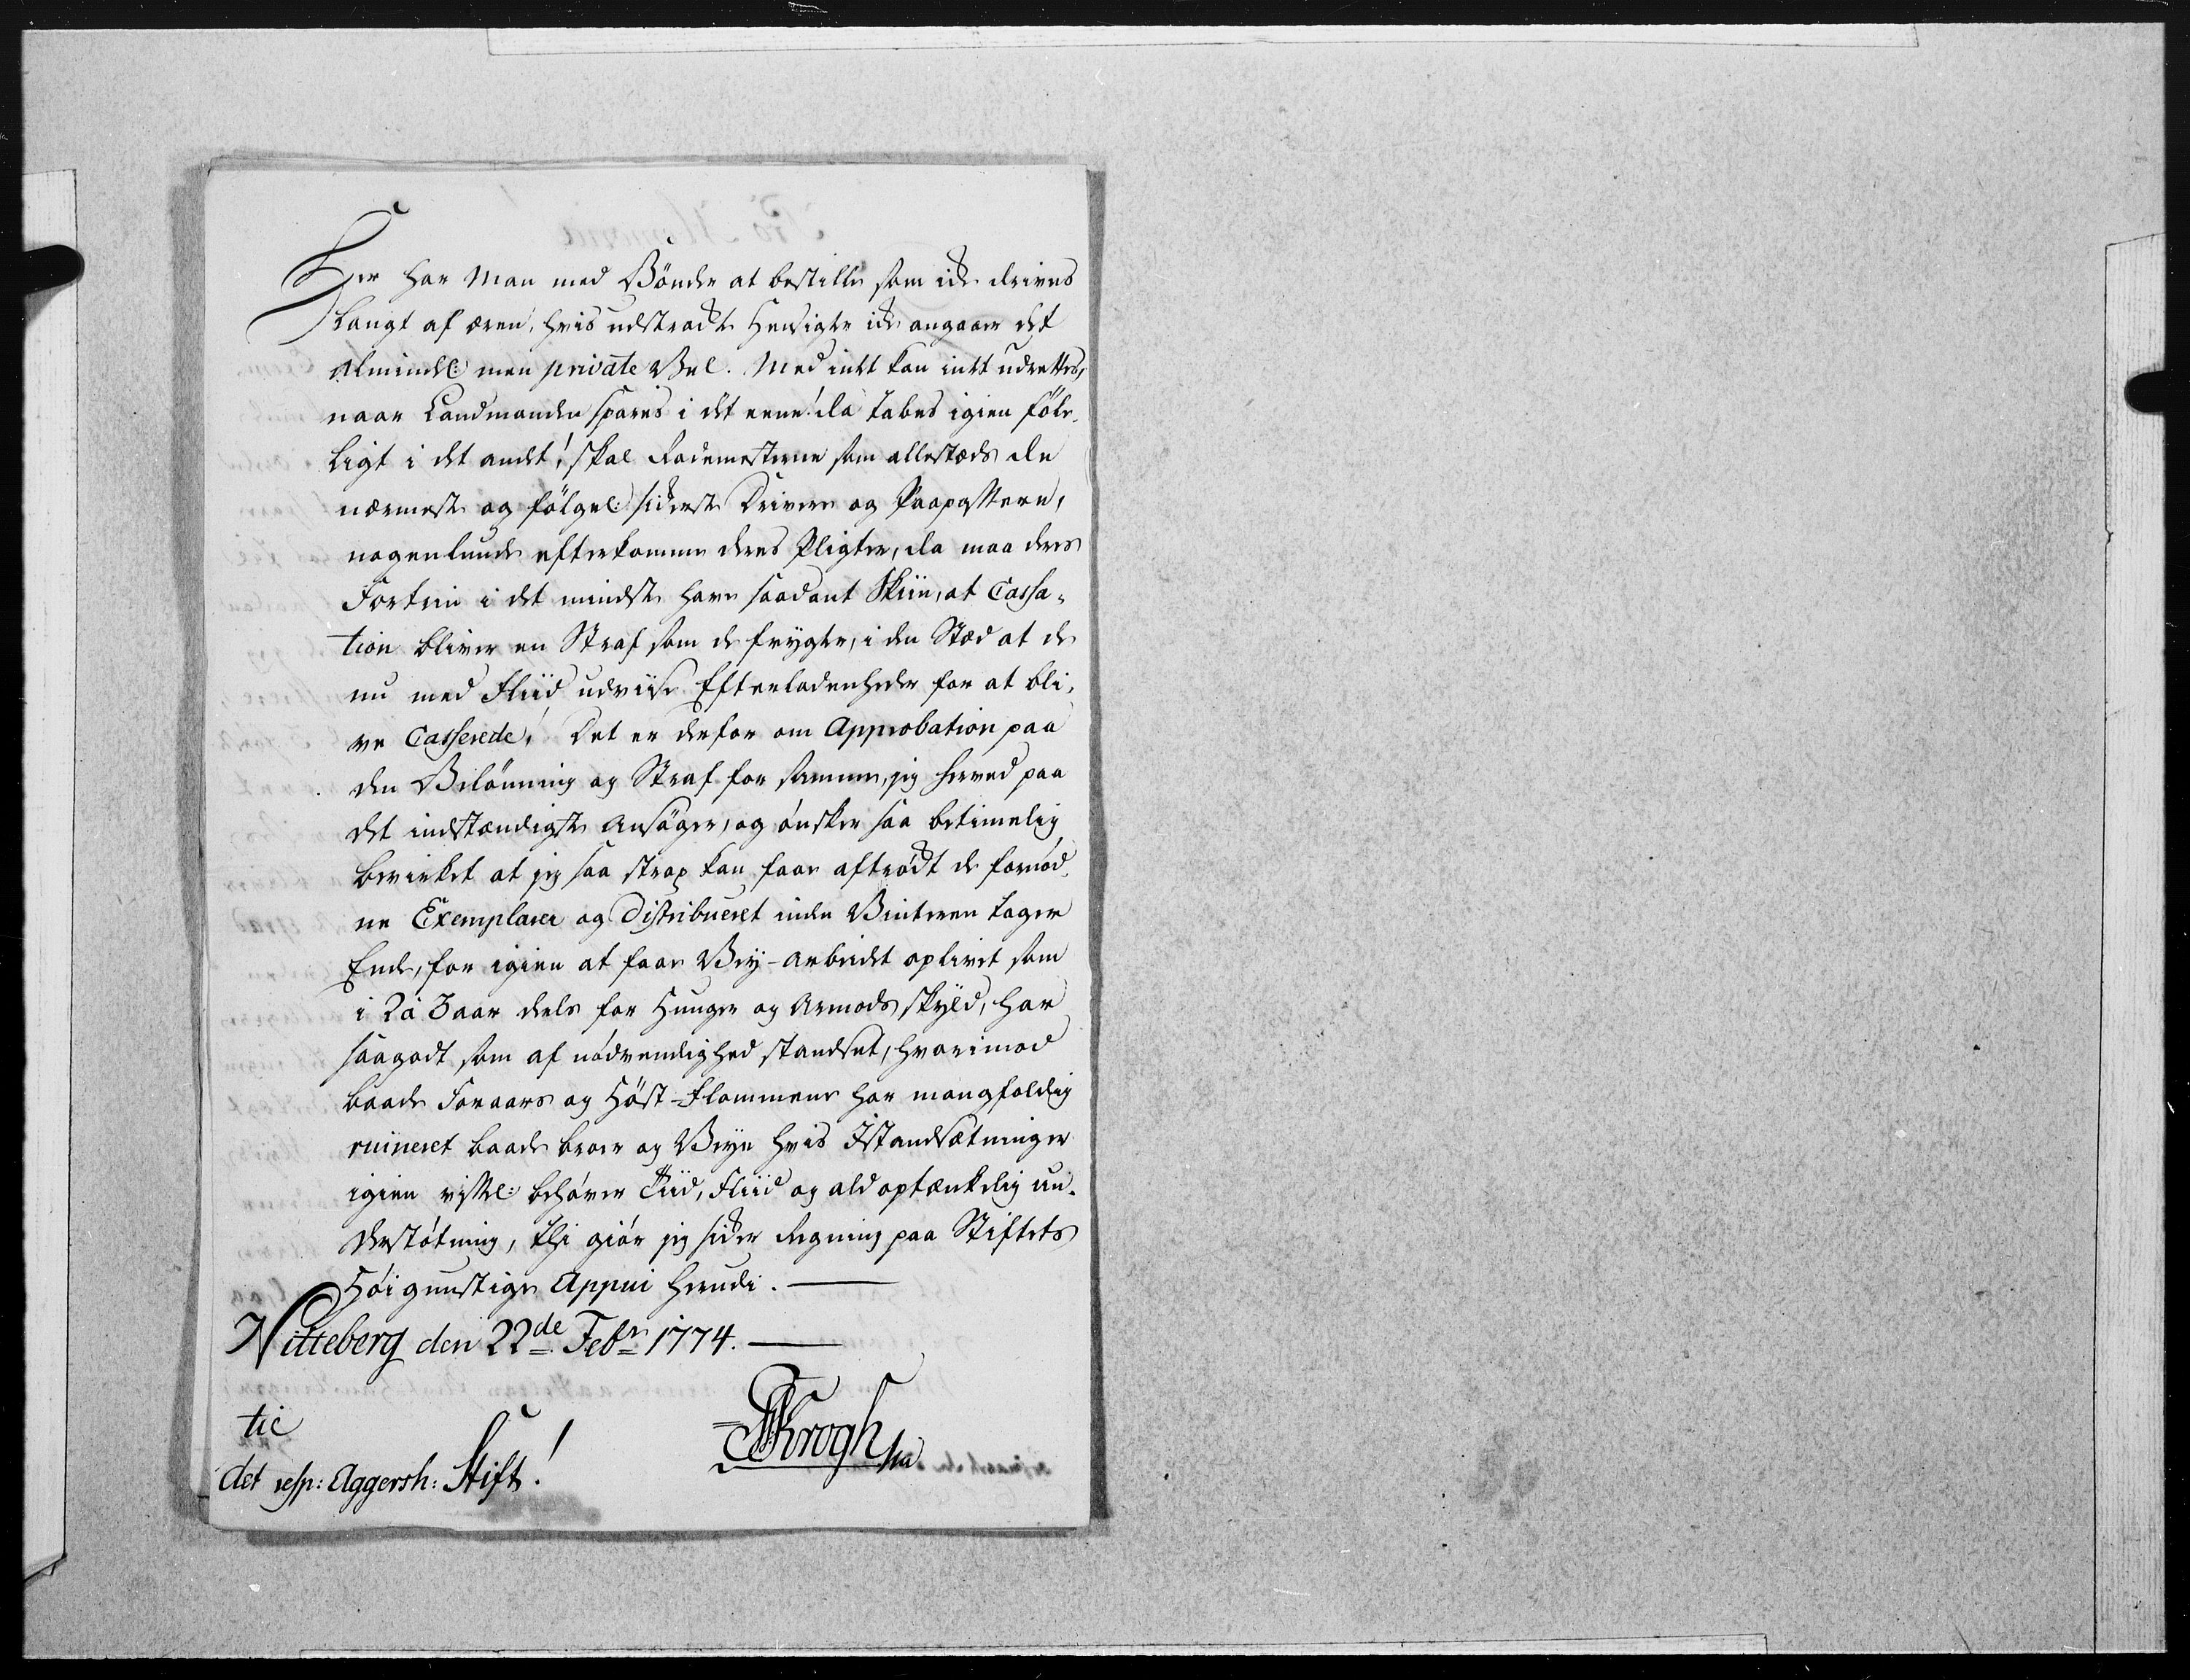 Her har Man med Bönder at bestille som icke drives
langt af æren, hvis udstrackte Hensigter icke angaaer det
Almindel: men private Vel. Med intet kan intet udrettes,
naar Landmanden spares i det eene! da tabes igien föle-
ligt i det andet! skal Rodemesterne som allestæds de
nærmeste og fölgel: sickerste Drivere og Paapassere,
nogenlunde efterkomme deres Pligter, da maa deres
Fortrin i det mindste have saadant Skiin, at Cassa-
tion bliver en Straf som de frygter, i den Stæd at de
nu med Fliid udviise Efterladenheder for at bli-
ve Casserede! Det er derfor om Approbation paa
den Belönning og Straf for samme, jeg herved paa
det indstændigste ansöger, og önsker saa betimelig
bevirket at jeg saa strax kan faae aftröckt de fornöd-
ne Exemplarer og Distribueret inden Vinteren tager
Ende, for igien at faae Vey-arbeidet oplivet som
i 2 à 3 aar dels for Hunger og Armods skyld, har
saagodt som af nödvendighed standset, hvorimod
baade Foraars og Höst-Flommene har mangfoldig
ruineret baade broer og Veye hvis Istandsætninger
igien visSel: behöver Tiid, Fliid og ald optænkelig un-
derstötning, thi giör jeg sicker Regning paa Stiftets
Höigunstige Appui herudi.
Nitteberg den 22de Febr 1774.
Krogh
til
det resp: Aggersh: Stift!